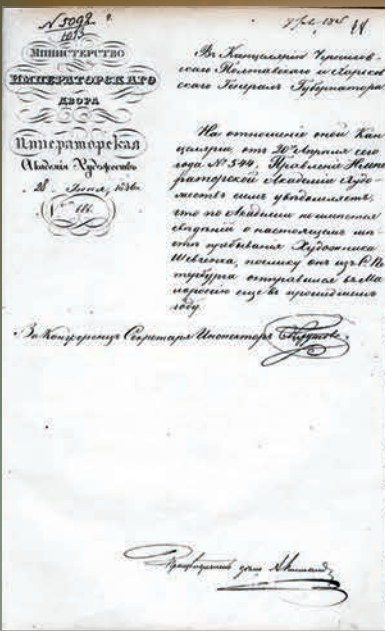 № 5092
Министерство
Императорскаго
Двора
Императорская
Академія Художествъ
28 Іюня, 1846
№ 686.
Въ Канцелярію Чернигов-
скаго Полтавскаго и Харьков-
скаго Генералъ Губернатора
На отношеніе оной Кан-
целяріи, отъ 20го Апрѣля сего
года № 544. Правленіе Импе-
раторской Академіи Худо-
жествъ симъ увѣдомляетъ,
что по Академіи не имѣется
свѣдѣній о настоящемъ мѣ-
стѣ пребыванія Художника
Шевченка, поелику онъ изъ С. Пе-
тербурга отправился въ Ма-
лороссію еще въ прошедшемъ
году.
За Конференцъ Секретаря Инспекторъ Крутовъ.